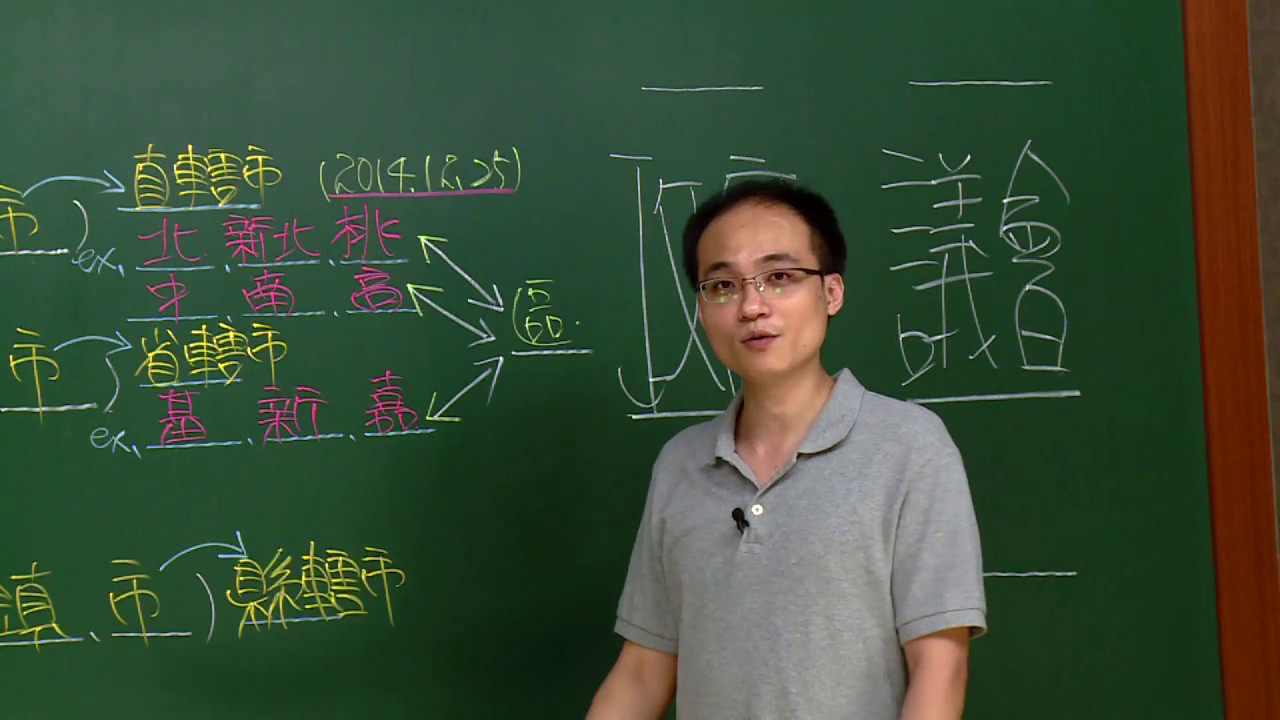 市) 直轄市 (2014.12.25)
ex、北、新北、桃
中、南、高
市) 省轄市
ex、基、新、嘉
鎮、市) 縣轄市
議會